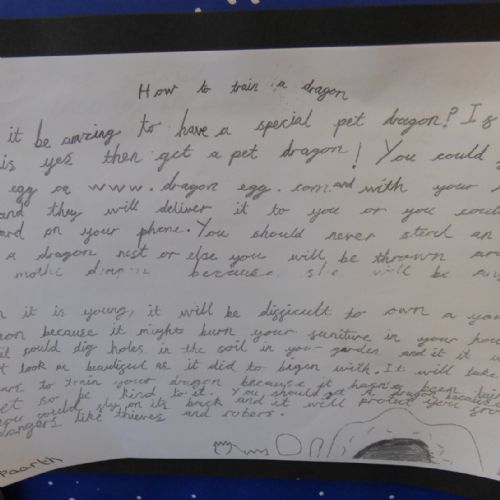 How to train a dragon
it be amazing to have a special pet dragon? If
is yes then get a pet dragon! You could
egg on www.dragon egg.com and with your
and they will deliver it to you or you could
on your phone. You should never steal an
a dragon nest or else you will be thrown
because she will be
it is young, it will be difficult to own a
because it might burn your in your
it could dig holes in the soil in your garden and it it
look as beautiful as it did to bigen with. It will take
to train your dragon because it hasn't been
so be kind to it. You should get a dragon because
you could fly on its back and it will protect you
dangers like thieves and robers.
Paarth